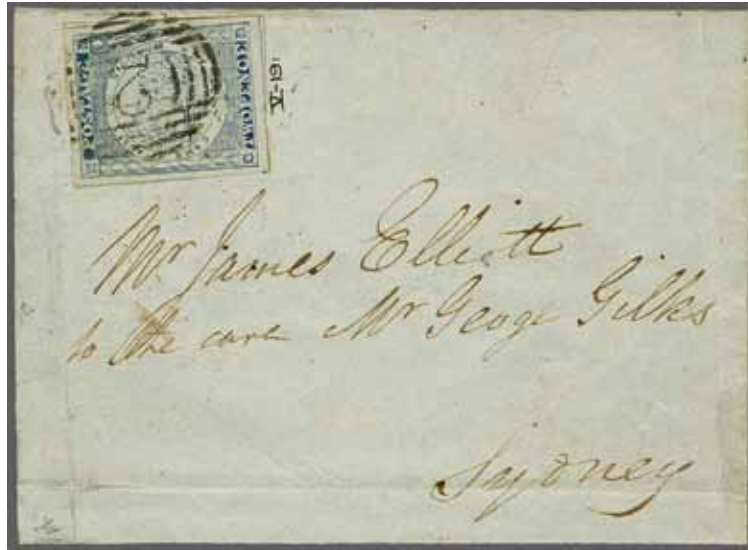 V-19'
Mr James Elliott
to the care Mr George Gilks
Sydney